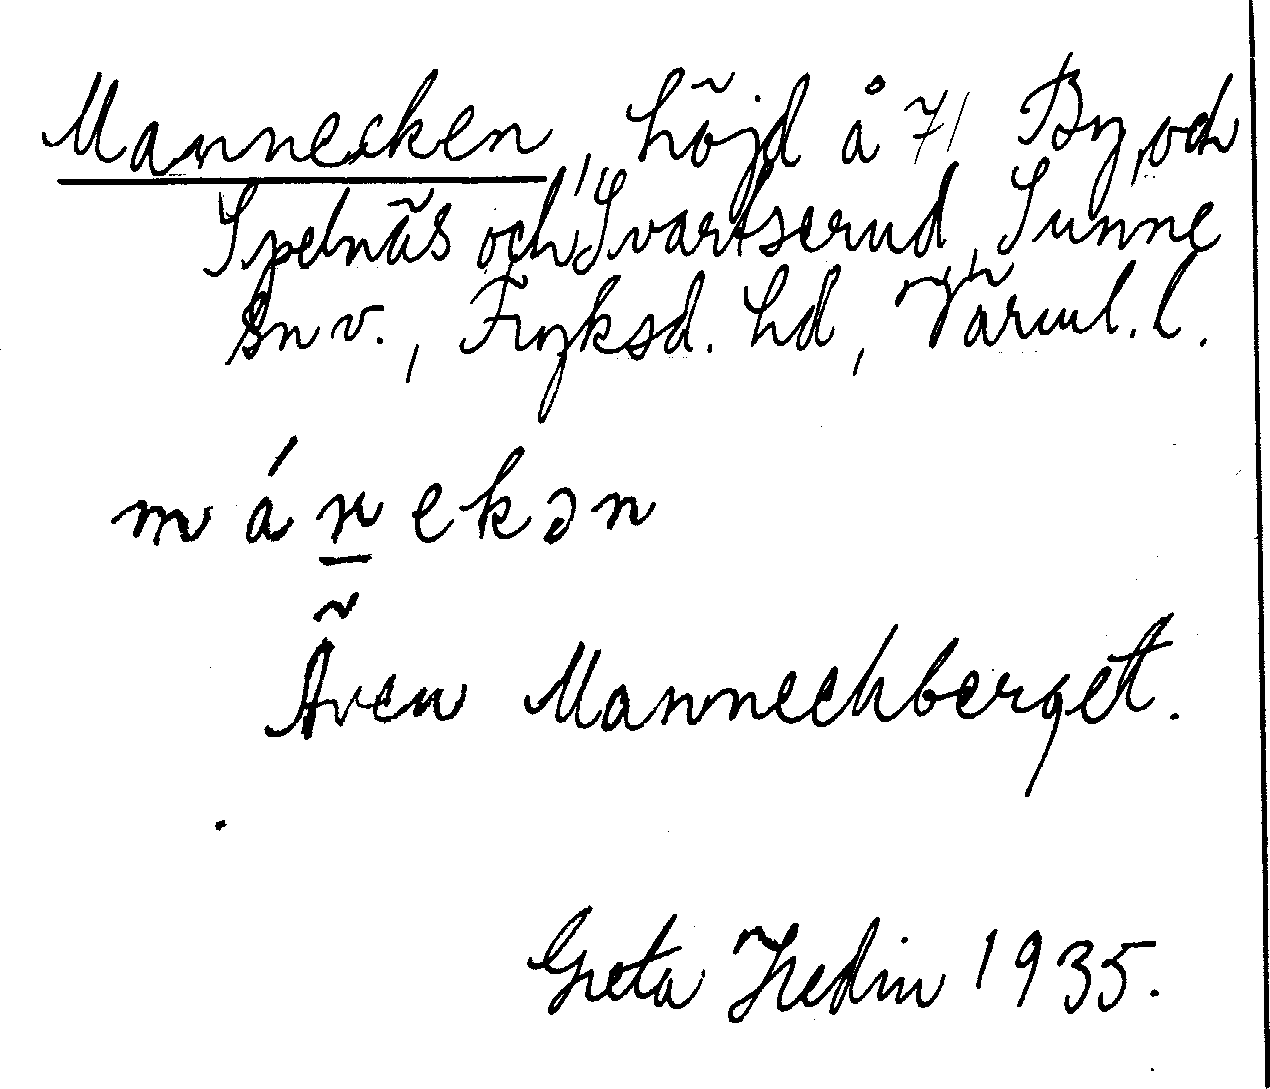 Mannecken, höjd å 71 By, och
Spelnäs och Svartserud, Sunne
sn v., Fryksd. hd, Värml. l.
mánekən
Även Manneckberget.
Greta Hedin 1935.